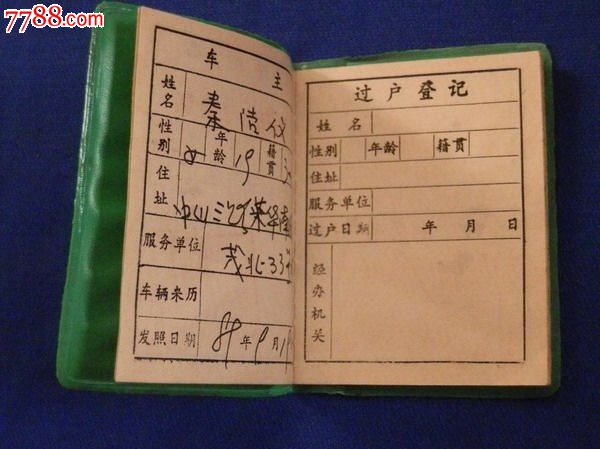 7788.com
中国收藏热线
车 主
姓名
性别 女 年龄 19 籍贯
住址 中山三路
服务单位 茂北33
车辆来历
发照日期 89年9月1
过户登记
姓名
性别 年龄 籍贯
住址
服务单位
过户日期 年 月 日
经办机关